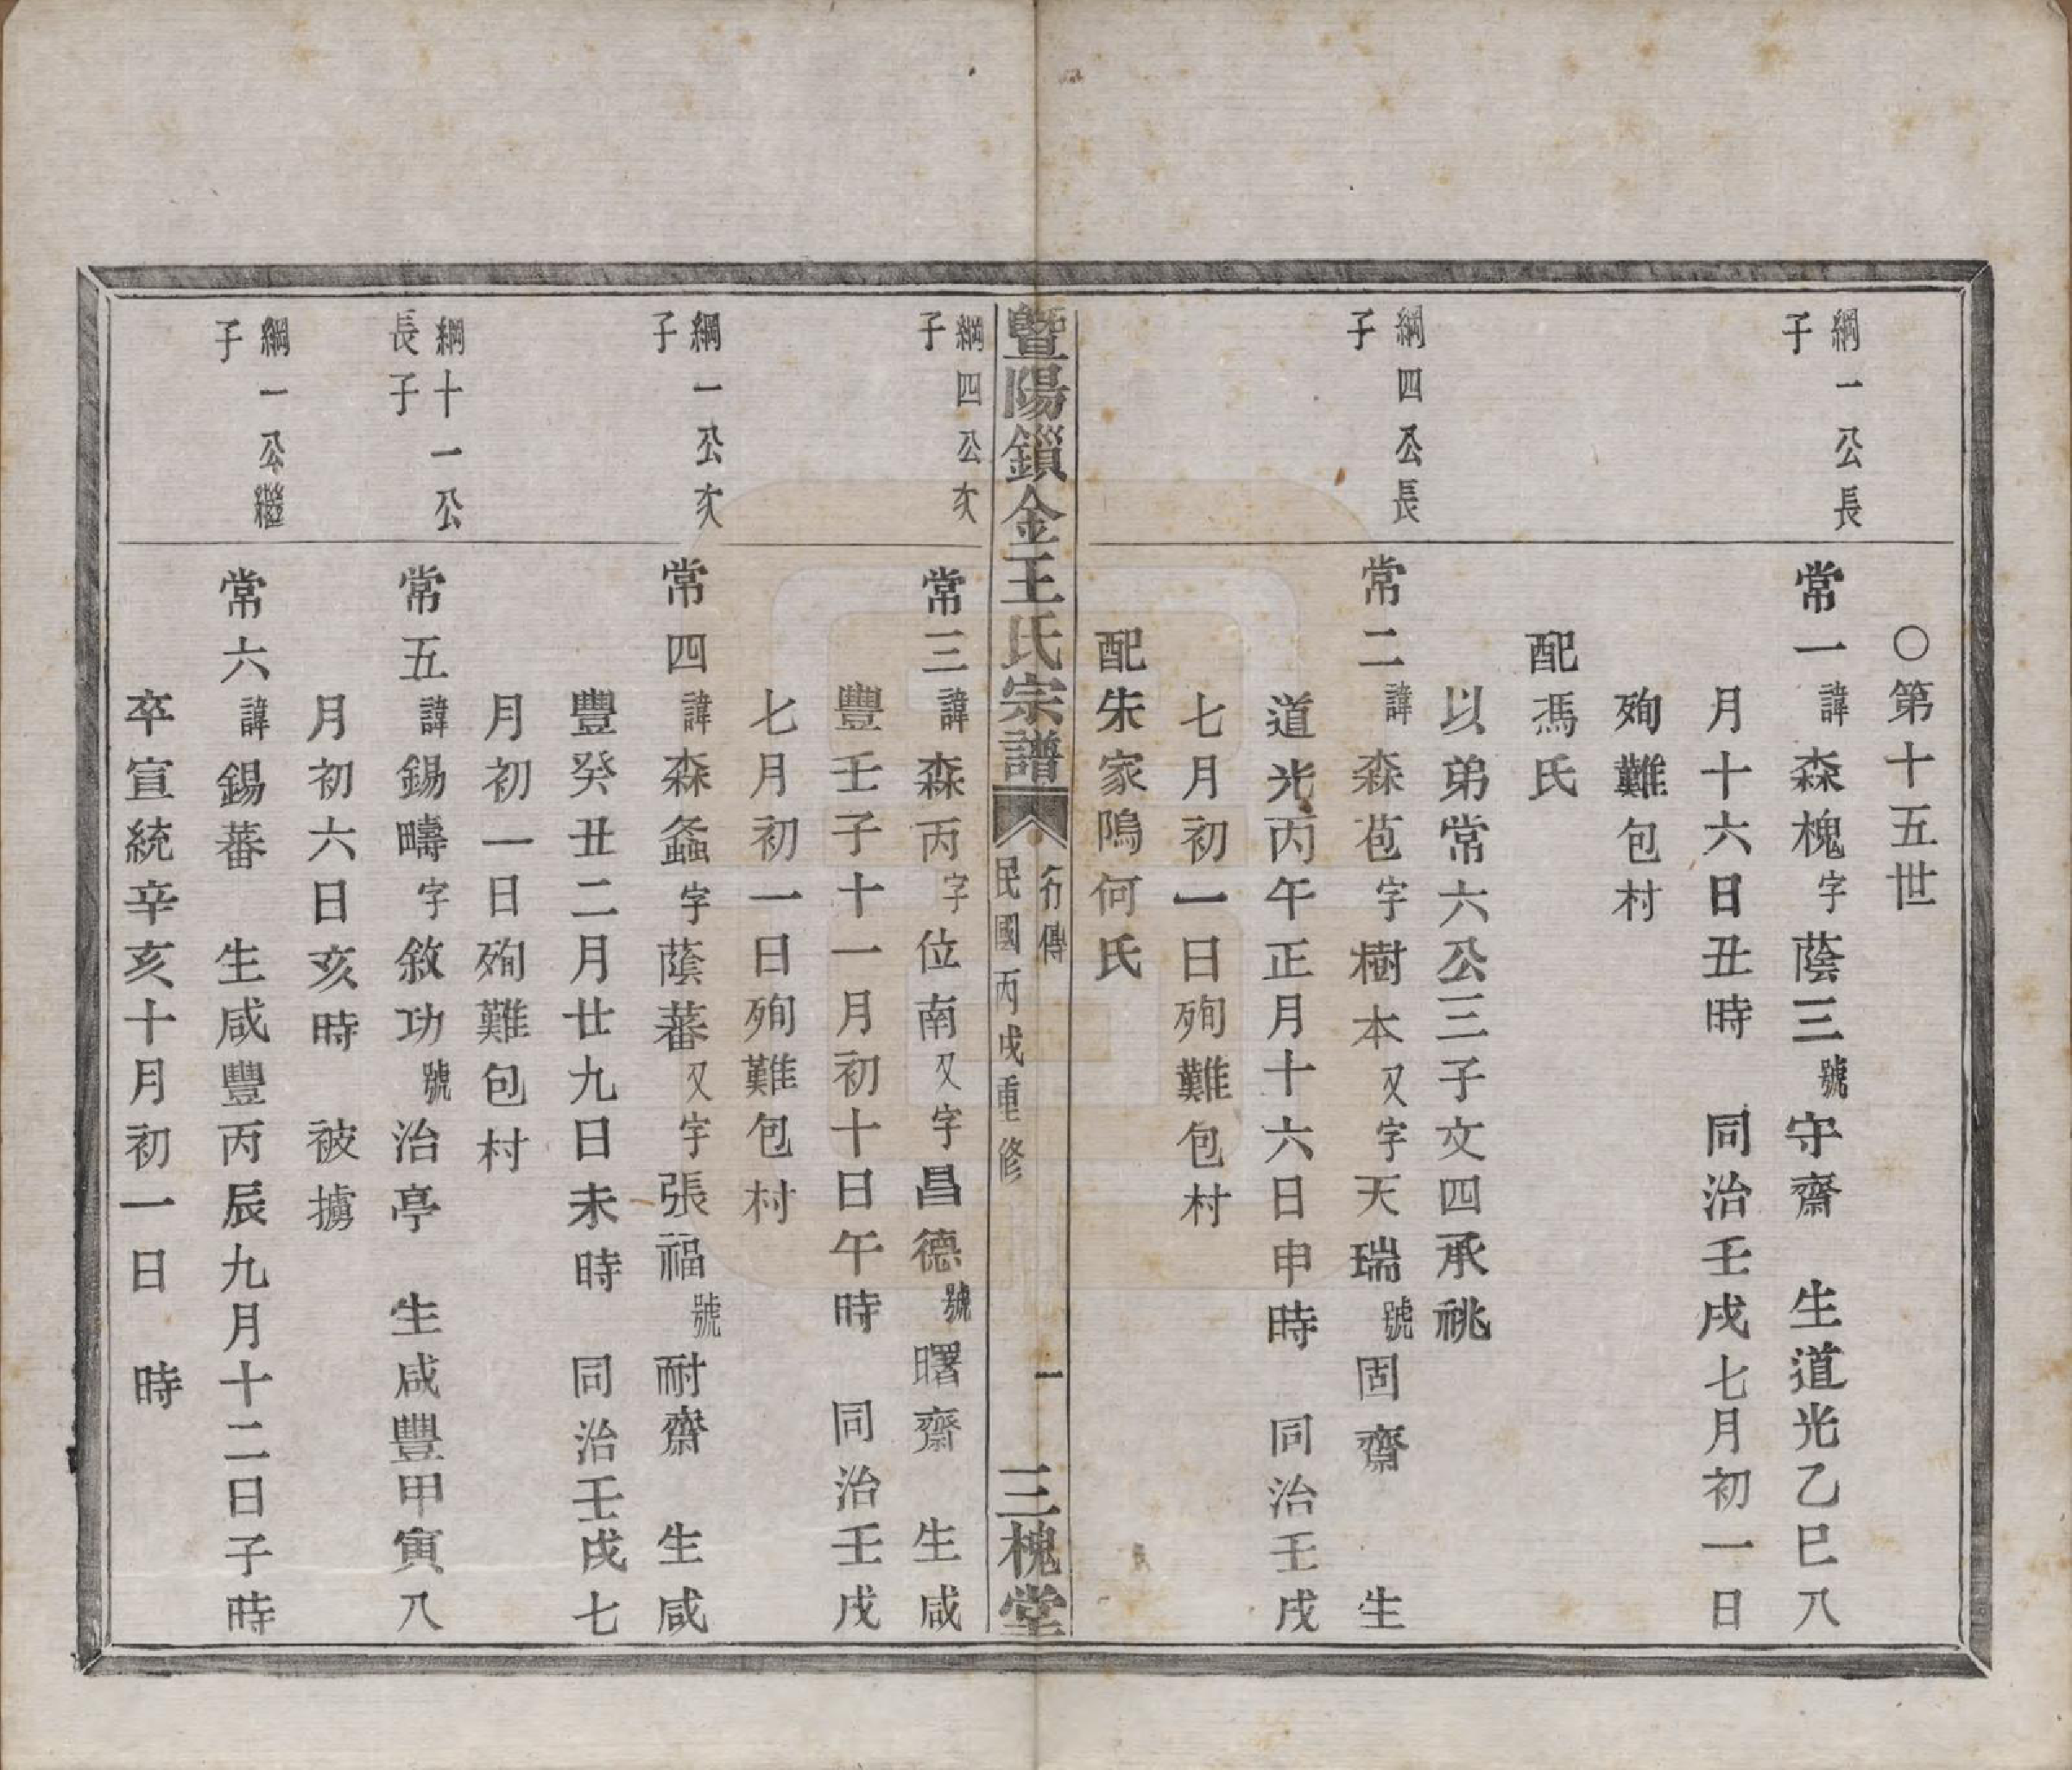 ○第十五世
綱一公長
子
常一諱森槐字蔭三號守齋　生道光乙巳八
月十六日丑時　同治壬戌七月初一日
殉難包村
配馮氏
以弟常六公三子文四承祧
綱四公長
子
常二諱森苞字樹本又字天瑞號固齋　生
道光丙午正月十六日申時　同治壬戌
七月初一日殉難包村
配朱家隝何氏
暨陽鎖金王氏宗譜
行傳
民國丙戌重修
一
三槐堂
綱四公次
子
常三諱森丙字位南又字昌德號曙齋　生咸
豐壬子十一月初十日午時　同治壬戌
七月初一日殉難包村
綱一公次
子
常四諱森螽字蔭蕃又字張福號耐齋　生咸
豐癸丑二月廿九日未時　同治壬戌七
月初一日殉難包村
綱十一公
長子
常五諱錫疇字敘功號治亭　生咸豐甲寅八
月初六日亥時　被擄
綱一公繼
子
常六諱錫蕃　生咸豐丙辰九月十二日子時
卒宣統辛亥十月初一日　時